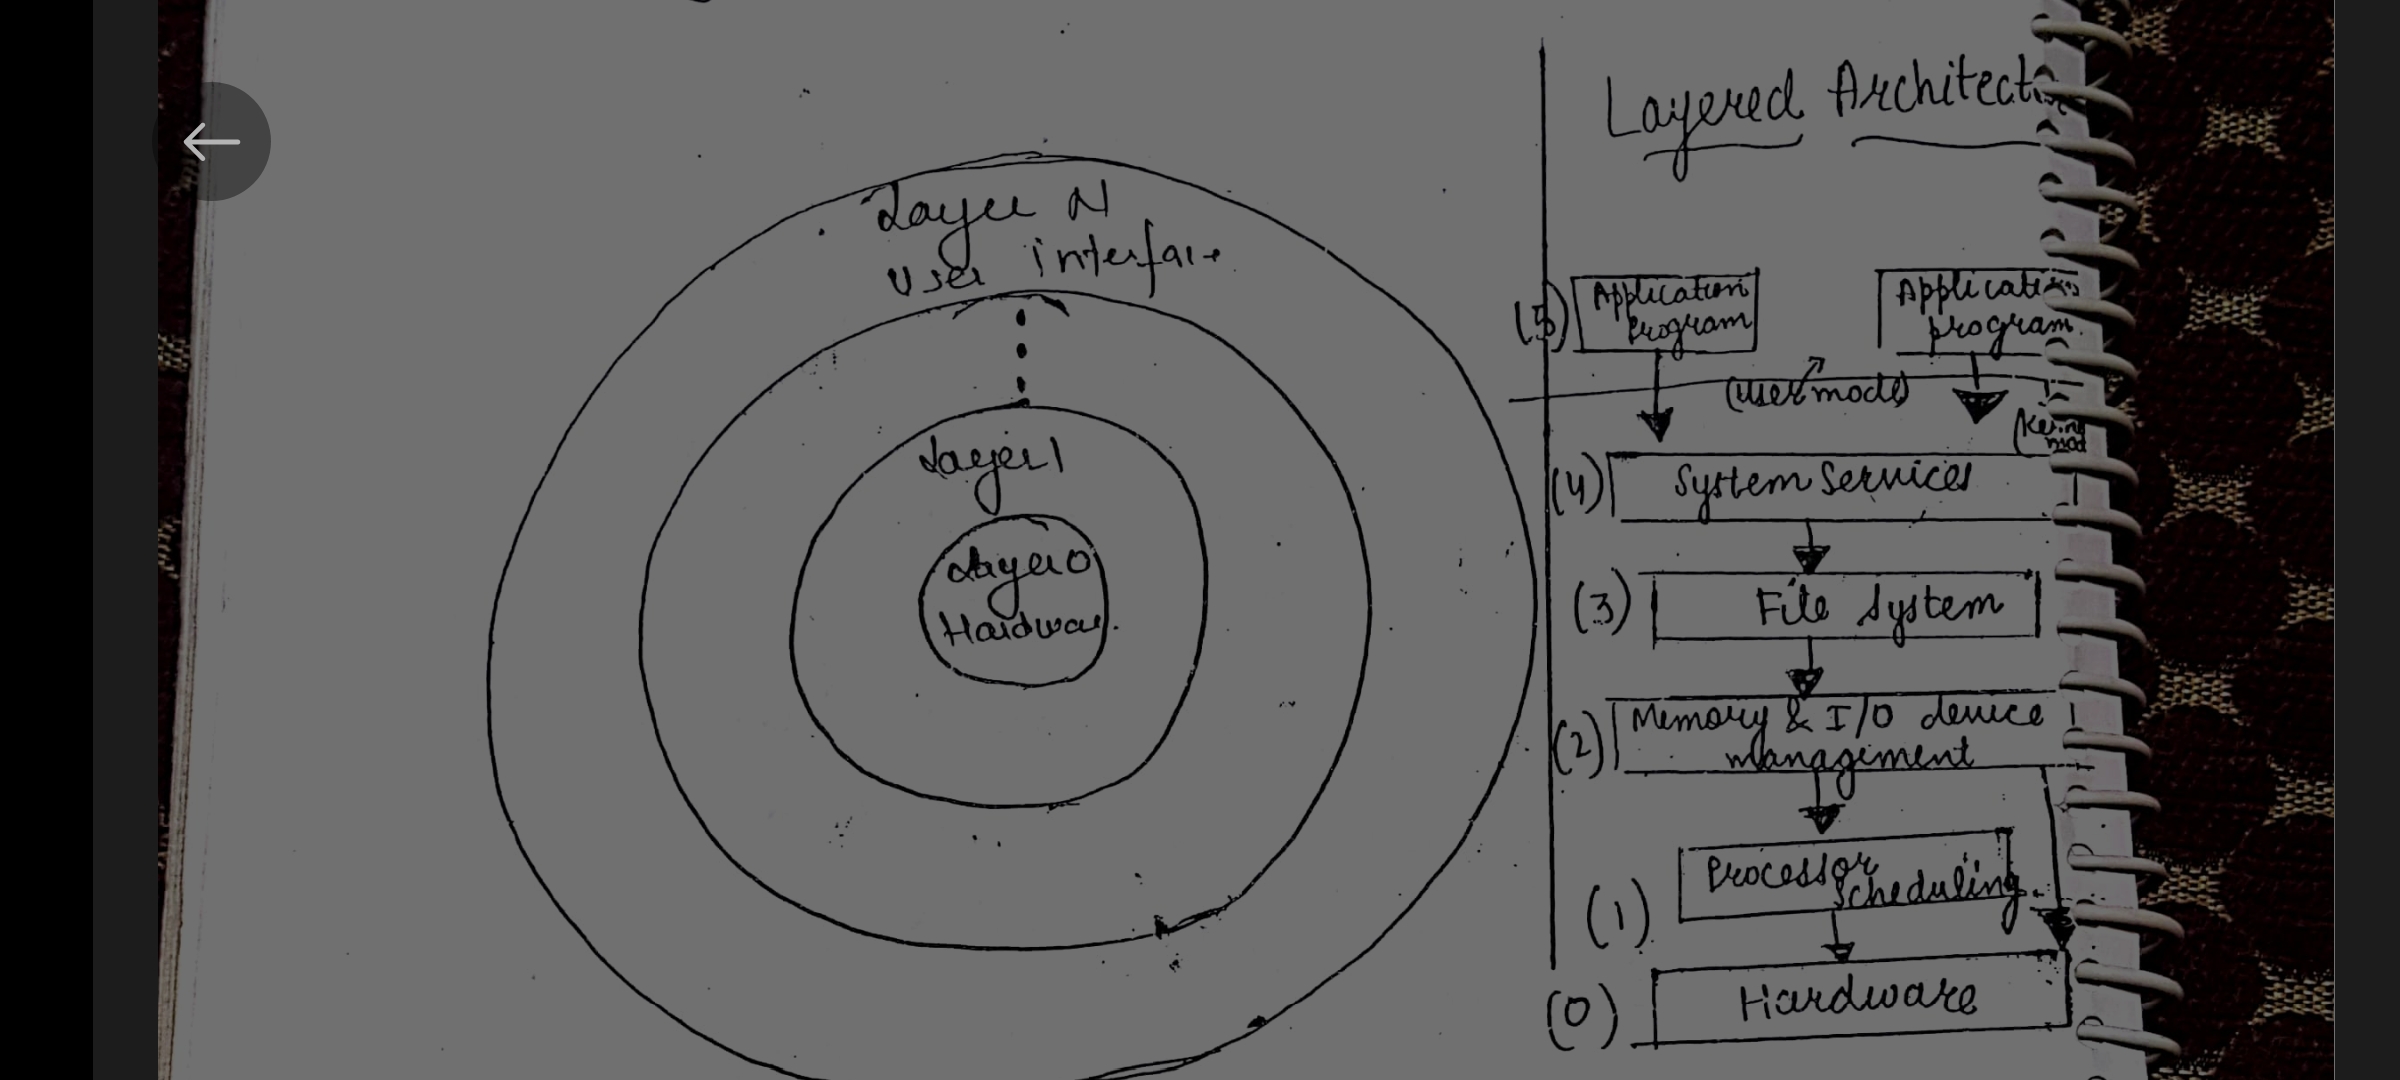 Layer N
User interface
Layer 1
Layer 0
Hardwar.
Layered Architect
(5) Application program
Application program
(user mode)
(4) System Services
(3) File System
(2) Memory & I/O device management
(1) Processor Scheduling
(0) Hardware